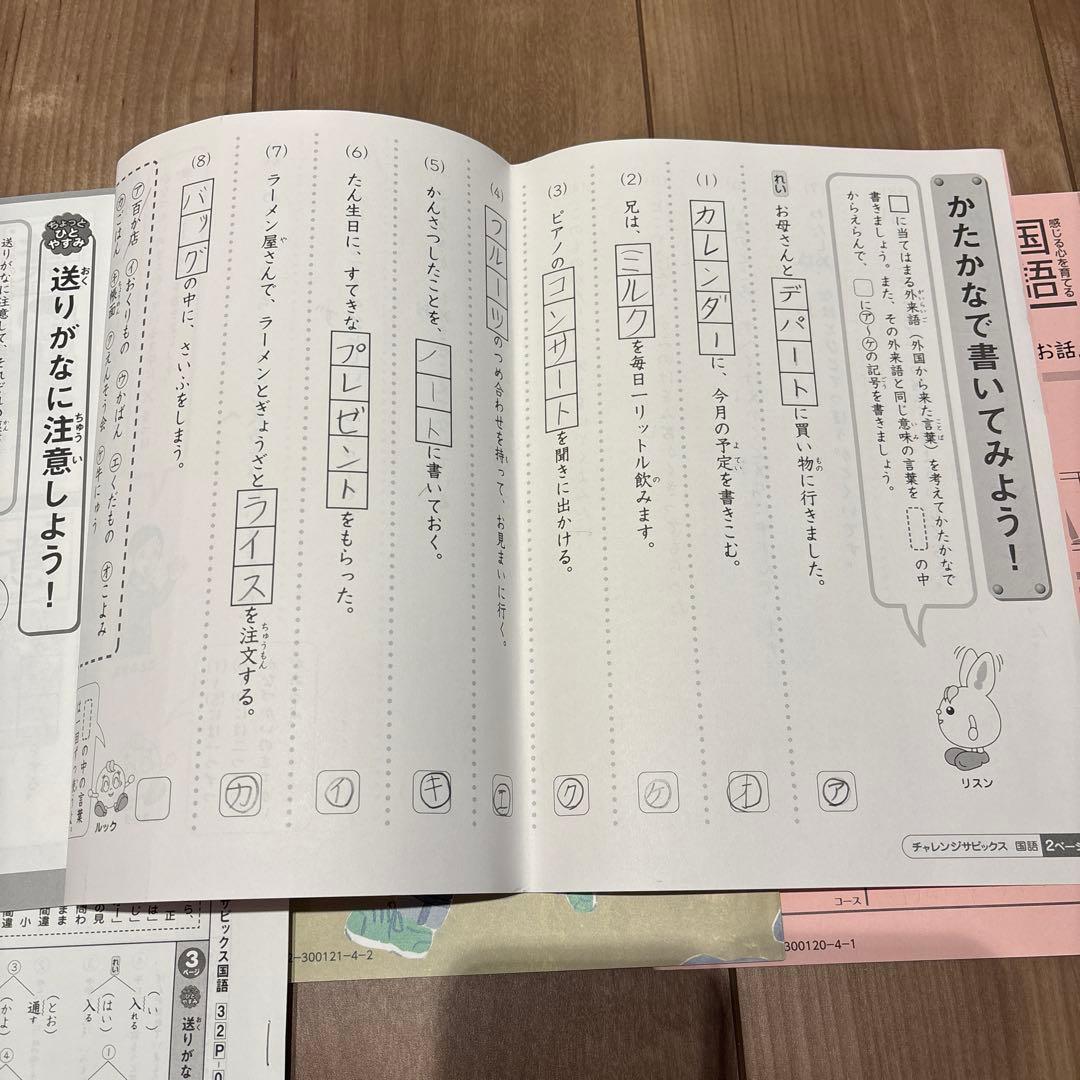 かたかなで書いてみよう！
□に当てはまる外来語（外国から来た言葉）を考えてかたかなで
書きましょう。また、その外来語と同じ意味の言葉を の中
からえらんで、□に㋐～㋘の記号を書きましょう。
リスン
れい お母さんとデパートに買い物に行きました。 ㋐
(1) カレンダーに、今月の予定を書きこむ。 ㋔
(2) 兄は、ミルクを毎日一リットル飲みます。 ㋘
(3) ピアノのコンサートを聞きに出かける。 ㋗
(4) フルーツのつめ合わせを持って、お見まいに行く。 ㋓
(5) かんさつしたことを、ノートに書いておく。 ㋖
(6) たん生日に、すてきなプレゼントをもらった。 ㋑
(7) ラーメン屋さんで、ラーメンとぎょうざとライスを注文する。 ㋕
(8) バッグの中に、さいふをしまう。
㋐百か店 ㋑おくりもの ㋒かばん ㋓くだもの ㋔こよみ
㋕ごはん ㋖帳面 ㋗えんそう会 ㋘牛にゅう
の中の言葉
ルック
チャレンジサピックス 国語 2ページ
ちょっと
ひと
やすみ
送りがなに注意しよう！
送りがなに注意して、それぞれの
感じる心を育てる
国語
お話
コース
300120-4-1
2-300121-4-2
サピックス国語 32P-0
3
ページ
送りがな
れい
(い)
入れる
(はい)
入る
(とお)
通す
(かよ)
①
③
④